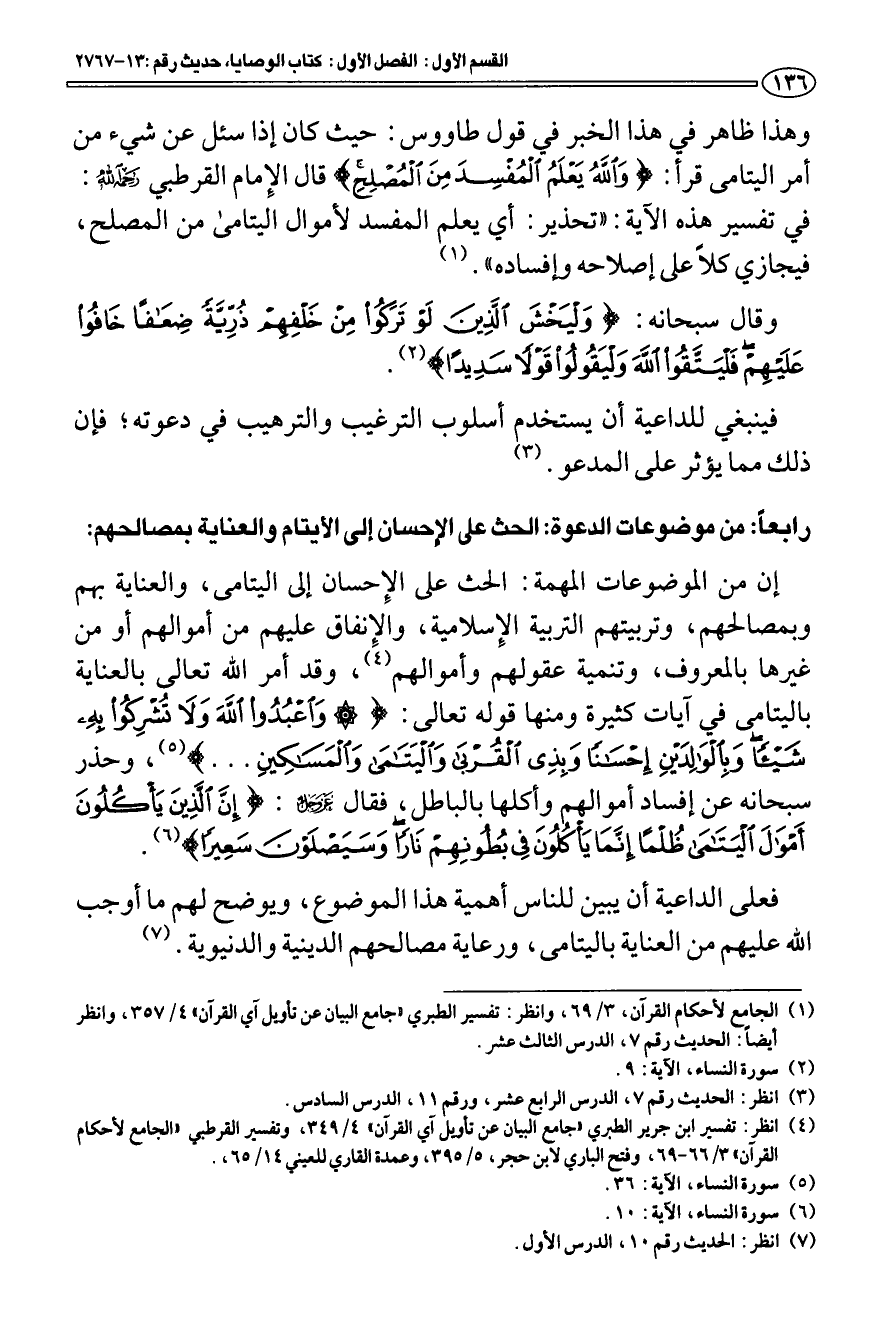 القسم الأول: الفصل الأول: كتاب الوصايا، حديث رقم: ١٣-٢٧٦٧
١٣٦
وهذا ظاهر في هذا الخبر في قول طاووس: حيث كان إذا سئل عن شيء من
أمر اليتامى قرأ: ﴿ وَٱللَّهُ يَعْلَمُ ٱلْمُفْسِدَ مِنَ ٱلْمُصْلِحِ ﴾ قال الإمام القرطبي رحمه الله :
في تفسير هذه الآية: «تحذير: أي يعلم المفسد لأموال اليتامىٰ من المصلح،
فيجازي كلاً على إصلاحه وإفساده» . (١)
وقال سبحانه: ﴿ وَلْيَخْشَ ٱلَّذِينَ لَوْ تَرَكُوا۟ مِنْ خَلْفِهِمْ ذُرِّيَّةً ضِعَٰفًا خَافُوا۟
عَلَيْهِمْ فَلْيَتَّقُوا۟ ٱللَّهَ وَلْيَقُولُوا۟ قَوْلًا سَدِيدًا ﴾(٢) .
فينبغي للداعية أن يستخدم أسلوب الترغيب والترهيب في دعوته؛ فإن
ذلك مما يؤثر على المدعو . (٣)
رابعاً: من موضوعات الدعوة: الحث على الإحسان إلى الأيتام والعناية بمصالحهم:
إن من الموضوعات المهمة: الحث على الإحسان إلى اليتامى، والعناية بهم
وبمصالحهم، وتربيتهم التربية الإسلامية، والإنفاق عليهم من أموالهم أو من
غيرها بالمعروف، وتنمية عقولهم وأموالهم(٤)، وقد أمر الله تعالى بالعناية
باليتامى في آيات كثيرة ومنها قوله تعالى: ﴿ ۞ وَٱعْبُدُوا۟ ٱللَّهَ وَلَا تُشْرِكُوا۟ بِهِۦ
شَيْـًٔا وَبِٱلْوَٰلِدَيْنِ إِحْسَٰنًا وَبِذِى ٱلْقُرْبَىٰ وَٱلْيَتَٰمَىٰ وَٱلْمَسَٰكِينِ . . . ﴾(٥)، وحذر
سبحانه عن إفساد أموالهم وأكلها بالباطل، فقال عز وجل : ﴿ إِنَّ ٱلَّذِينَ يَأْكُلُونَ
أَمْوَٰلَ ٱلْيَتَٰمَىٰ ظُلْمًا إِنَّمَا يَأْكُلُونَ فِى بُطُونِهِمْ نَارًا وَسَيَصْلَوْنَ سَعِيرًا ﴾(٦) .
فعلى الداعية أن يبين للناس أهمية هذا الموضوع، ويوضح لهم ما أوجب
الله عليهم من العناية باليتامى، ورعاية مصالحهم الدينية والدنيوية . (٧)
(١) الجامع لأحكام القرآن، ٦٩/٣، وانظر: تفسير الطبري «جامع البيان عن تأويل آي القرآن» ٣٥٧/٤، وانظر
أيضاً: الحديث رقم ٧، الدرس الثالث عشر .
(٢) سورة النساء، الآية: ٩ .
(٣) انظر: الحديث رقم ٧، الدرس الرابع عشر، ورقم ١١، الدرس السادس .
(٤) انظر: تفسير ابن جرير الطبري «جامع البيان عن تأويل آي القرآن» ٣٤٩/٤، وتفسير القرطبي «الجامع لأحكام
القرآن» ٦٦/٣-٦٩، وفتح الباري لابن حجر، ٣٩٥/٥، وعمدة القاري للعيني ٦٥/١٤، .
(٥) سورة النساء، الآية: ٣٦ .
(٦) سورة النساء، الآية: ١٠ .
(٧) انظر: الحديث رقم ١٠، الدرس الأول .